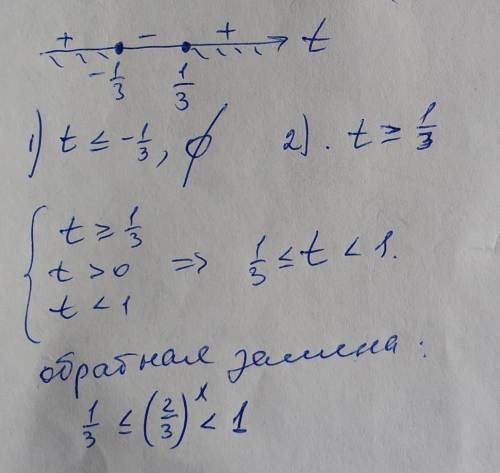 + - + t
-1/3 1/3
1) t ≤ -1/3, ∅ 2). t ≥ 1/3
{ t ≥ 1/3
t > 0 => 1/3 ≤ t < 1.
t < 1
обратная замена:
1/3 ≤ (2/3)^x < 1